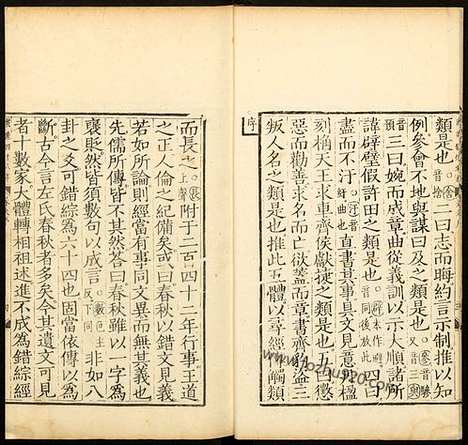 類是也○舍音捨二曰志而晦約言示制推以知
例參會不地與謀曰及之類是也
三曰婉而成章曲從義訓以示大順諸所
諱辟璧假許田之類是也○辟本亦作避音同後放此四曰
盡而不汙紆曲也直書其事具文見意丹楹
刻桷天王求車齊侯獻捷之類是也五曰懲
惡而勸善求名而亡欲蓋而章書齊豹盜三
叛人名之類是也推此五體以尋經傳觸類
序
而長之上聲附于二百四十二年行事王道
之正人倫之紀備矣或曰春秋以錯文見義
若如所論則經當有事同文異而無其義也
先儒所傳皆不其然荅曰春秋雖以一字為
襃貶然皆須數句以成言○數色主反下同非如八
卦之爻可錯綜為六十四也固當依傳以為
斷古今言左氏春秋者多矣今其遺文可見
者十數家大體轉相祖述進不成為錯綜經